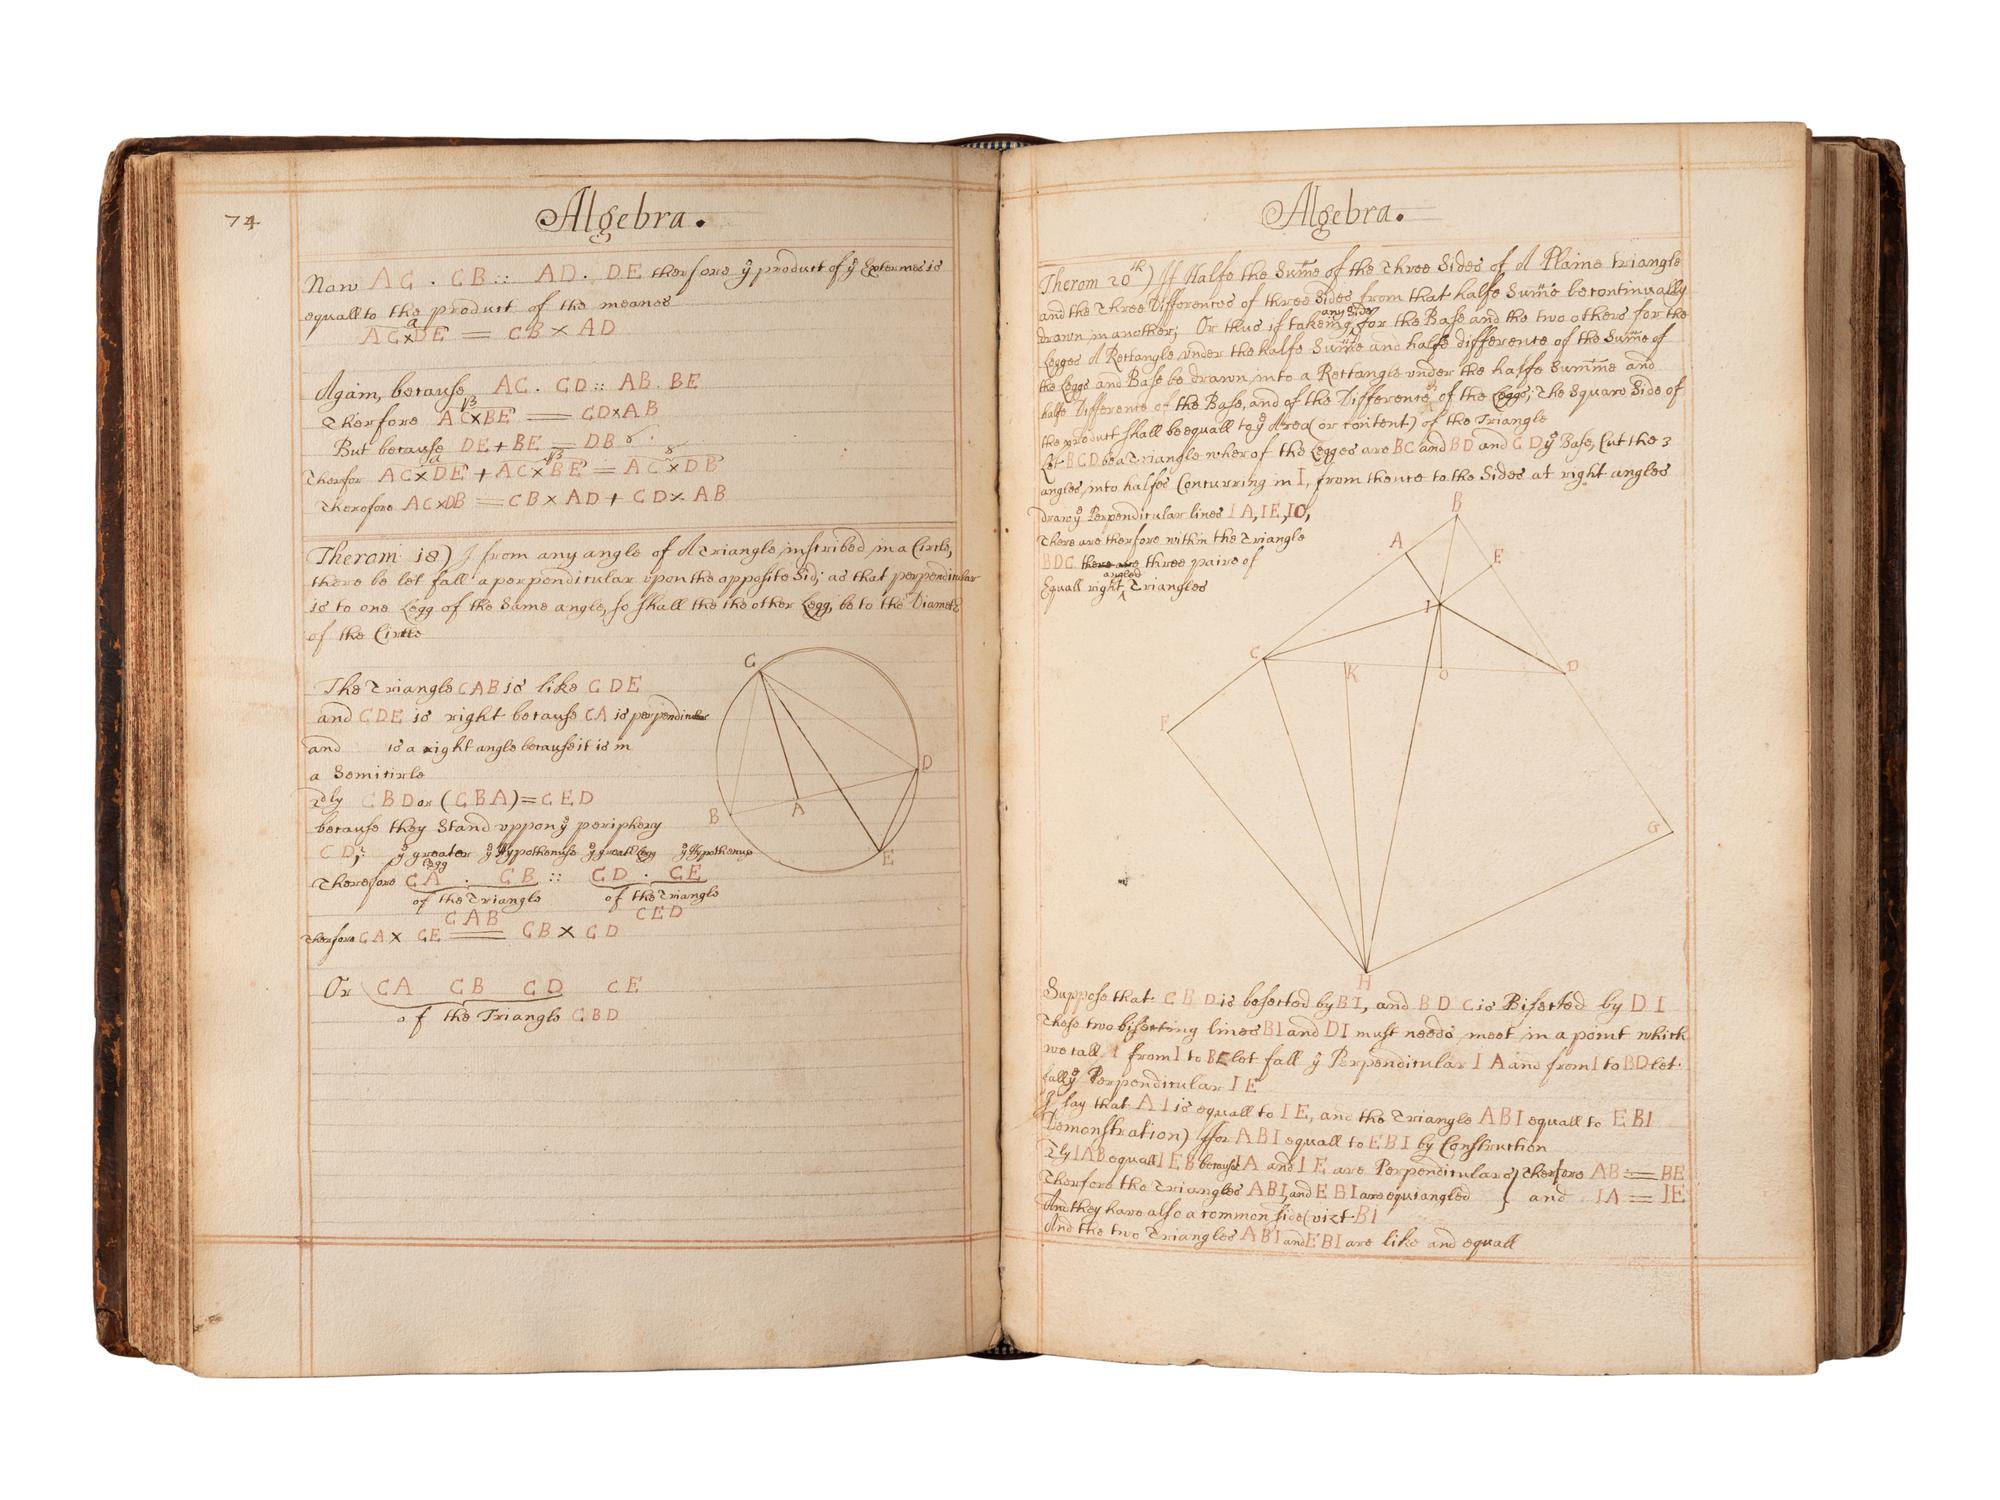 74
Algebra.
Now AC . CB :: AD . DE therfore ẙ product of ẙ Extermes is
equall to the product of the meanes
a
AC×DE = CB × AD
Again, because AC . CD :: AB . BE
β
Therfore AC×BE = CD×AB
But because DE + BE = DB
a β 8
Therfor AC×DE + AC×BE = AC×DB
Therefore AC×DB = CB × AD + CD × AB
Therom 18) If from any angle of A Triangle inscribed in a Circle,
there be let fall a perpendicular vpon the opposite Sid; as that perpendicular
is to one Legg of the Same angle, so shall the the other Legg, be to the Diamete
of the Circle
The Triangle CAB is like CDE
and CDE is right because CA is perpendicular
and is a right angle because it is in
a Semicircle
2dly CBD or (CBA) = CED
because they Stand vppon ẙ periphery
CD;
ẙ greater ẙ Hypothenuse ẙ great Legg ẙ Hypothenus
Legg
Therefore CA . CB :: CD . CE
of the Triangle of the Triangle
CAB CED
Therfore CA × CE = CB × CD
Or CA CB CD CE
of the Triangle CBD
C
D
B
A
E
Algebra.
Therom 20th) If Halfe the Sum̄e of the Three Sides of A Plaine triangle
and the Three Differences of three Sides from that halfe Sum̄e be continually
any Side
drawn in another; Or thus if takeing for the Base and the two others for the
Legges A Rectangle vnder the halfe Sum̄e and halfe difference of the Sum̄e of
the Leggs and Base be drawn into a Rectangle vnder the halfe Summe and
halfe Difference of the Base, and of the Difference of the Leggs; The Square Side of
the product shall be equall to ẙ Area (or content) of the Triangle
Let BCD be a Triangle wherof the Legges are BC and BD and CD ẙ Base, Cut the 3
angles into halfes Concurring in I, from thence to the Sides at right angles
draw ẙ Perpendicular lines IA, IE, IO,
There are therfore within the Triangle
BDC there are three paires of
angled
Equall right Triangles
B
A
E
I
C
K
O
D
F
G
H
Suppose that CBD is besected by BI, and BDC is Bisected by DI
These two bisecting lines BI and DI must needs meet in a point which
we call I from I to BC let fall ẙ Perpendicular IA and from I to BD let
fall ẙ Perpendicular IE
I say that AI is equall to IE, and the Triangle ABI equall to EBI
Demonstration) ffor ABI equall to EBI by Construction
2ly IAB equall IEB because IA and IE are Perpendiculars } Therfore AB = BE
Therfore the Triangles ABI, and EBI are equiangled } and IA = IE
And they have also a common side (vizt BI
And the two Triangles ABI and EBI are like and equall